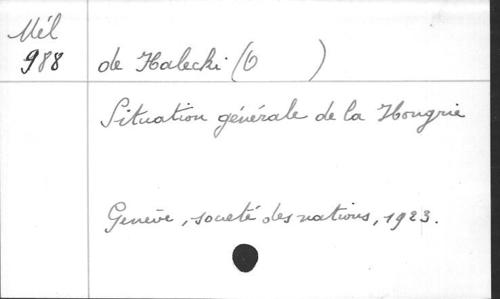 Mél
988 de Halecki (O )
Situation générale de la Hongrie
Genève, societé des nations, 1923.